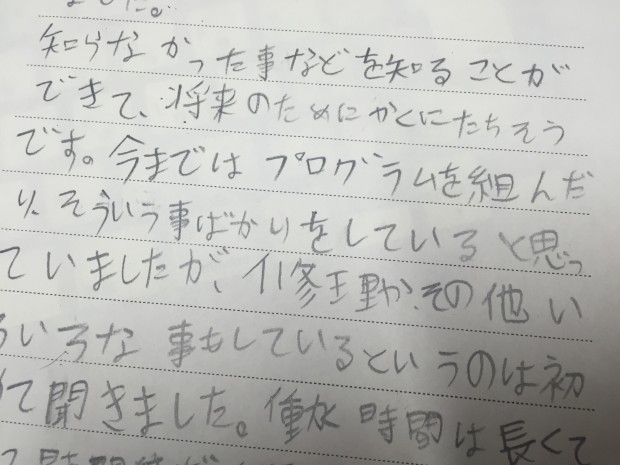 ました。
知らなかった事などを知ることが
できて、将来のためにやくにたちそう
です。今まではプログラムを組んだ
り、そういう事ばかりをしていると思っ
ていましたが、修理や、その他い
ろいろな事もしているというのは初
めて聞きました。時間は長くて
時間